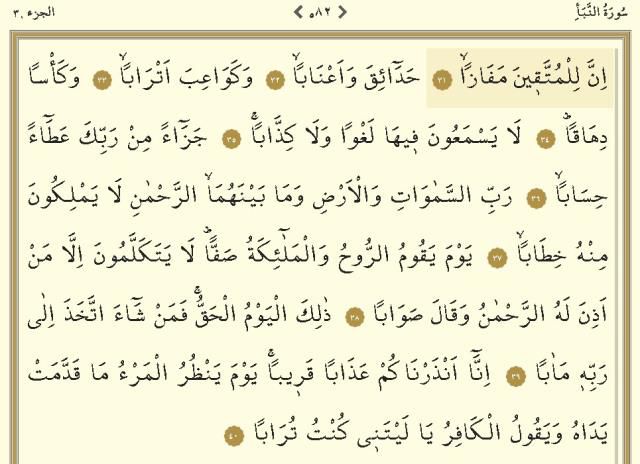 سُورَةُ النَّبَأِ ٥٨٢ الجزء ٣٠
اِنَّ لِلْمُتَّق۪ينَ مَفَازًاۙ ٣١ حَدَٓائِقَ وَاَعْنَابًاۙ ٣٢ وَكَوَاعِبَ اَتْرَابًاۙ ٣٣ وَكَأْسًا
دِهَاقًاۜ ٣٤ لَا يَسْمَعُونَ ف۪يهَا لَغْوًا وَلَا كِذَّابًاۚ ٣٥ جَزَٓاءً مِنْ رَبِّكَ عَطَٓاءً
حِسَابًاۙ ٣٦ رَبِّ السَّمٰوَاتِ وَالْاَرْضِ وَمَا بَيْنَهُمَاۙ الرَّحْمٰنِ لَا يَمْلِكُونَ
مِنْهُ خِطَابًاۙ ٣٧ يَوْمَ يَقُومُ الرُّوحُ وَالْمَلٰٓئِكَةُ صَفًّاۜ لَا يَتَكَلَّمُونَ اِلَّا مَنْ
اَذِنَ لَهُ الرَّحْمٰنُ وَقَالَ صَوَابًا ٣٨ ذٰلِكَ الْيَوْمُ الْحَقُّۚ فَمَنْ شَٓاءَ اتَّخَذَ اِلٰى
رَبِّه۪ مَاٰبًا ٣٩ اِنَّٓا اَنْذَرْنَاكُمْ عَذَابًا قَر۪يبًاۚ يَوْمَ يَنْظُرُ الْمَرْءُ مَا قَدَّمَتْ
يَدَاهُ وَيَقُولُ الْكَافِرُ يَا لَيْتَن۪ي كُنْتُ تُرَابًا ٤٠